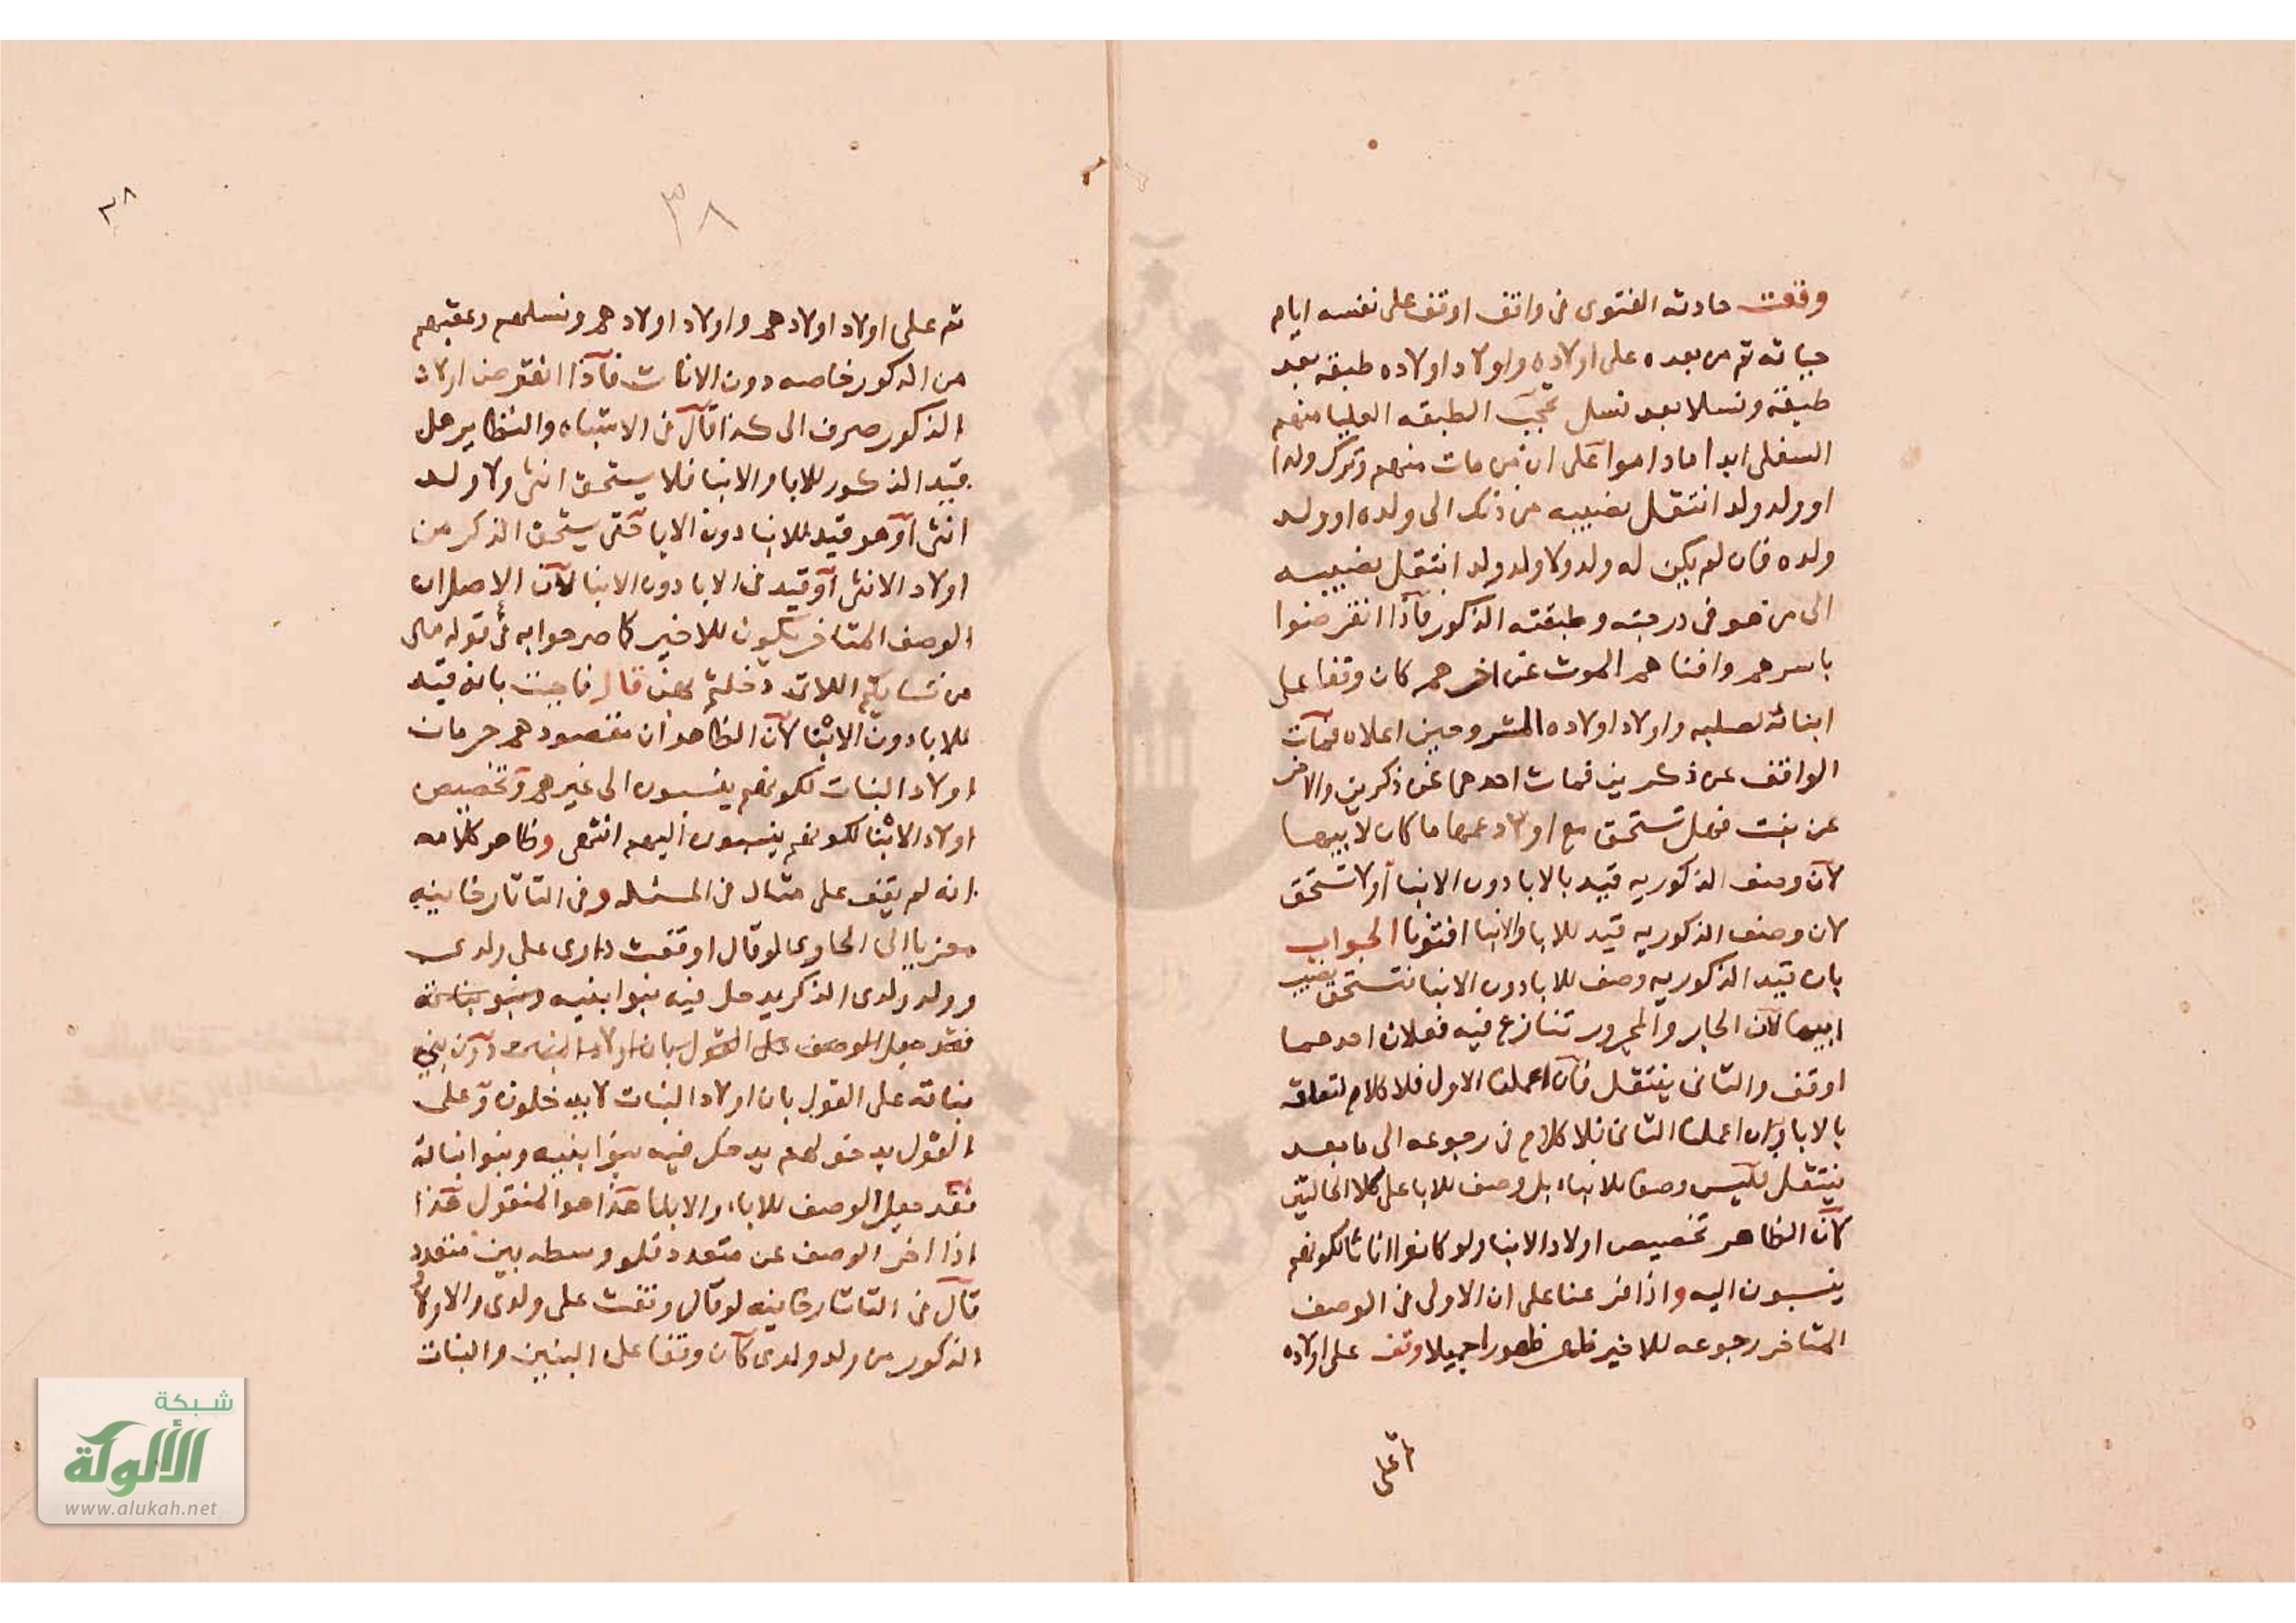 وقعت حادثه الفتوى فى واقف اوقف على نفسه ايام
حياته ثم من بعده على اولاده واولاد اولاده طبقه بعد
طبقة ونسلا بعد نسل تحجب الطبقه العليا منهم
السفلى ابدا ماداموا على ان من مات منهم وترك ولدا
او ولد ولد انتقل نصيبه من ذلك الى ولده او ولد
ولده فان لم يكن له ولد ولا ولد ولد انتقل نصيبه
الى من هو فى درجته وطبقته الذكور فاذا انقرضوا
باسرهم وافناهم الموت عن اخرهم كان وقفا على
ابنائه لصلبه واولاد اولاده المشروحين اعلاه فمات
الواقف عن ذكرين فمات احدهما عن ذكرين والاخر
عن بنت فهل تستحق مع اولاد عمها ما كان لابيها
لان وصف الذكوريه قيد بالابا دون الابنا او لا تستحق
لان وصف الذكوريه قيد للابا والابنا افتونا الجواب
بان قيد الذكوريه وصف للابا دون الابنا فتستحق نصيب
ابيها لان الجار والمجرور تنازع فيه فعلان احدهما
اوقف والثانى ينتقل فان اعملنا الاول فلا كلام لتعلقه
بالابا وان اعملنا الثانى فلا كلام فى رجوعه الى ما بعد
ينتقل فليس وصفا للابناء بل وصف للابا على كلا الحالتين
لان الظاهر تخصيص اولاد الابنا ولو كانوا اناثا لكونهم
ينسبون اليه واذا فرعنا على ان الاولى فى الوصف
المتاخر رجوعه للاخير ظهر ظهورا جميلا وقف على اولاده
ثم على
٣٨
٣٨
ثم على اولاد اولادهم واولاد اولادهم ونسلهم وعقبهم
من الذكور خاصه دون الاناث فاذا انقرض اولاد
الذكور صرف الى كذا قال فى الاشباه والنظاير هل
قيد الذكور للابا والابنا فلا يستحق انثى ولا ولد
انثى او هو قيد للابنا دون الابا حتى يستحق الذكر من
اولاد الانثى او قيد فى الابا دون الابنا لان الاصل ان
الوصف المتاخر يكون للاخير كما صرحوا به فى قوله تعالى
من نسايكم اللاتى دخلتم بهن قال فاجبت بانه قيد
للابا دون الابنا لان الظاهر ان مقصودهم حرمان
اولاد البنات لكونهم ينسبون الى غيرهم وتخصيص
اولاد الابنا لكونهم ينسبون اليهم انتهى وظاهر كلامه
انه لم يقف على مثال فى المسئله وفى التاتارخانيه
معزيا الى الحاوى لو قال اوقفت دارى على ولدى
وولد ولدى الذكر يدخل فيه بنوا بنيه وبنو بناته
فقد جعل الوصف على القول بان اولاد البنات دون بنى
بناته على القول بان اولاد البنات لا يدخلون وعلى
القول بدخولهم يدخل فيه بنوا بنيه وبنوا بناته
فقد جعل الوصف للاباء والابنا هذا هو المنقول هذا
اذا اخر الوصف عن متعدد فلو وسطه بين متعدد
قال فى التاتارخانيه لو قال وقفت على ولدى والاولاد
الذكور من ولد ولدى كان وقفا على البنين والبنات
شبكة
الألوكة
www.alukah.net